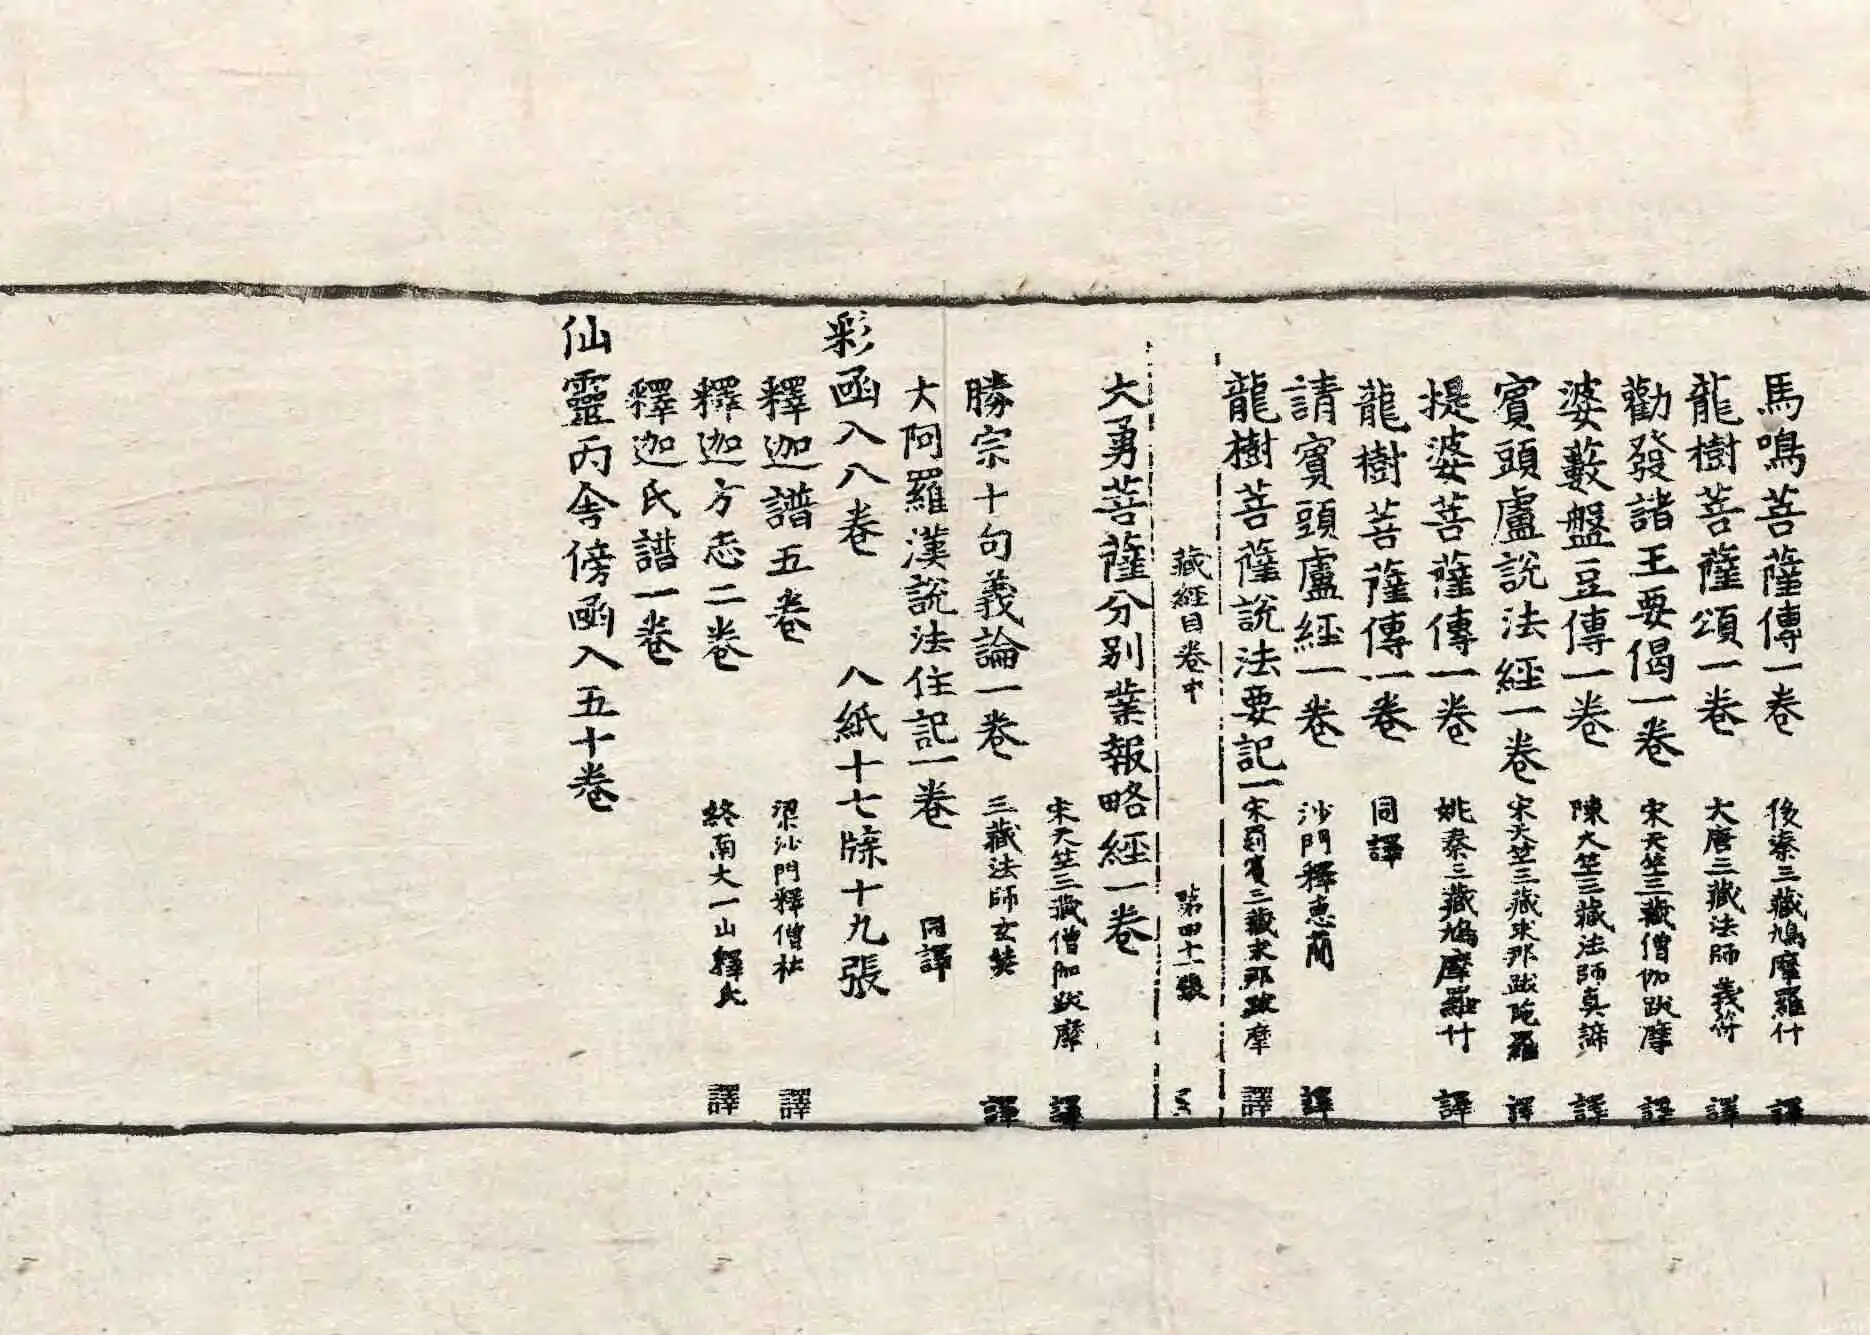 馬鳴菩薩傳一卷 後秦三藏鳩摩羅什 譯
龍樹菩薩頌一卷 大唐三藏法師義符 譯
勸發諸王要偈一卷 宋天竺三藏僧伽跋摩 譯
婆藪盤豆傳一卷 陳大竺三藏法師真諦 譯
賓頭盧說法經一卷 宋天竺三藏求那跋陀羅 譯
提婆菩薩傳一卷 姚秦三藏鳩摩羅什 譯
龍樹菩薩傳一卷 同譯
請賓頭盧經一卷 沙門釋惠蕳 譯
龍樹菩薩說法要記一 宋罽賓三藏求那跋摩 譯
藏經目卷中 第四十一張
大勇菩薩分別業報略經一卷
宋天竺三藏僧伽跋摩 譯
勝宗十句義論一卷 三藏法師玄奘 譯
大阿羅漢說法住記一卷 同譯
彩函入八卷 八紙十七牒十九張
釋迦譜五卷 梁沙門釋僧祐 譯
釋迦方志二卷 終南大一山釋氏 譯
釋迦氏譜一卷
仙靈丙舍傍函入五十卷